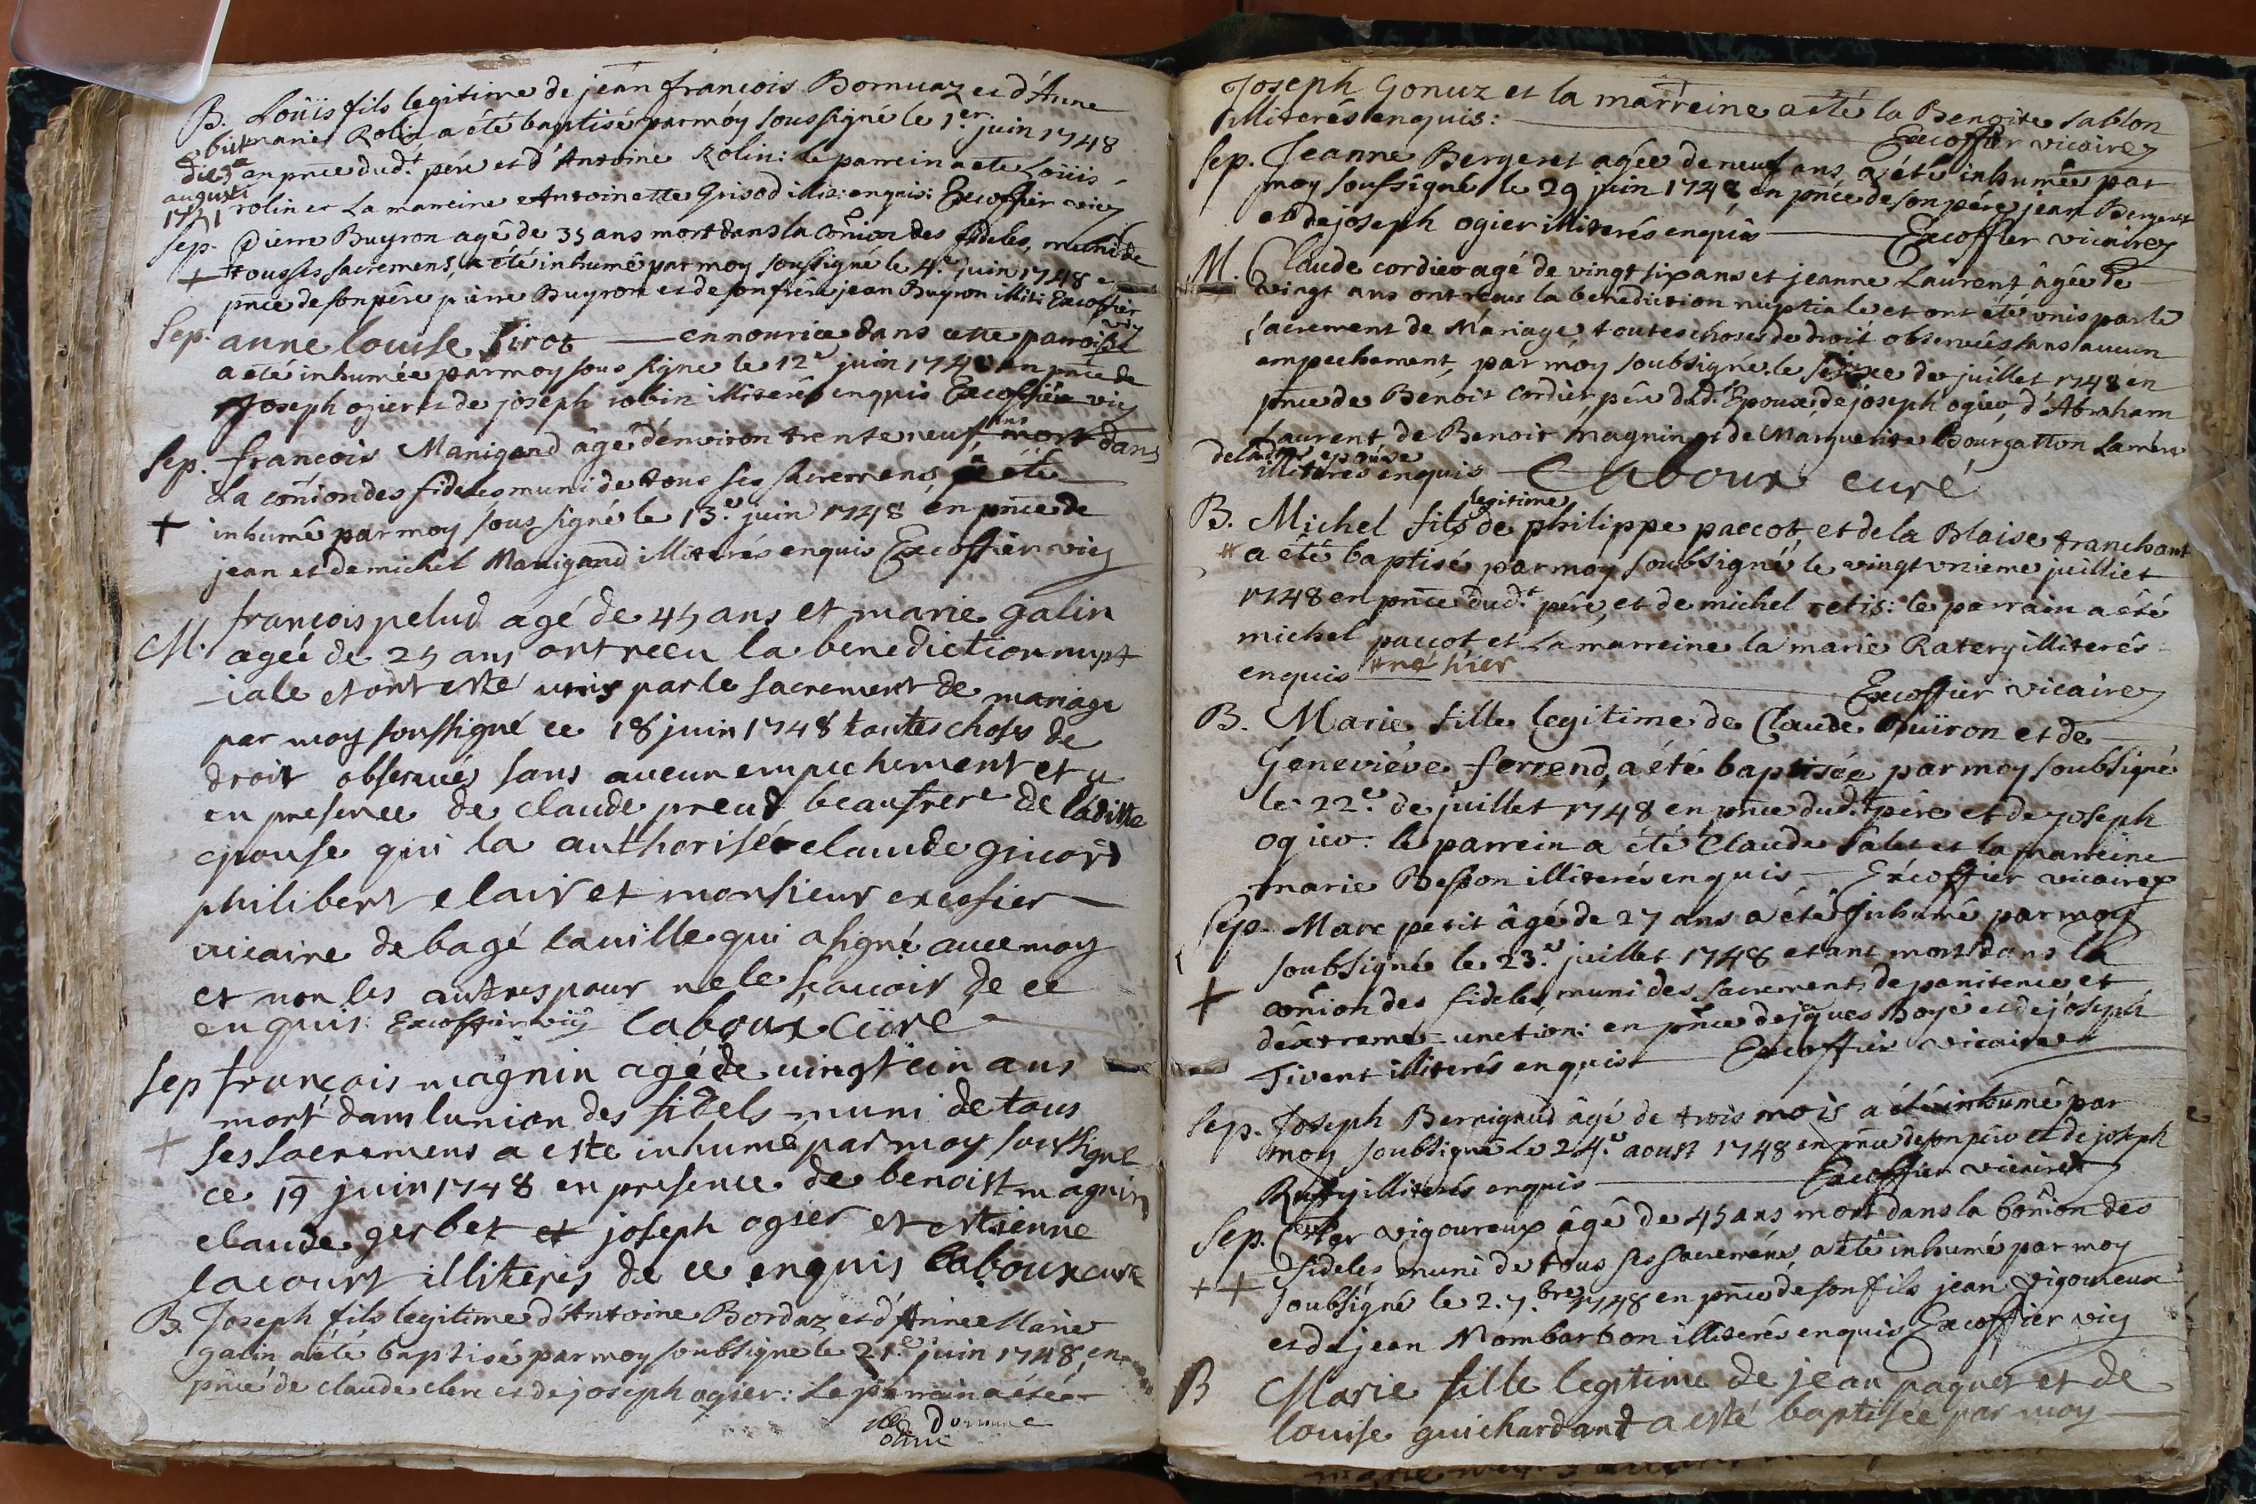 B. Loüis fils legitime de jean françois Bornuaz et d'Anne
marie Rolin a été baptisé par móy soussigné le 1.er juin 1748
obiit die 3a augusti 1751
en pnce dud.t pére et d'Antoine Rolin: le parrein a ete Loüis
rolin et La marreine Antoinette Grisod illit: enquis: Excoffier vic
Sep. pierre Buyron agé de 35 ans mort dans la coñion des fideles, muni de
+ tous ses sacremens, a été inhumé par moy soussigné le 4.e juin 1748 en
pnce de son pére pierre Buyron et de son frere jean Buyron illit: Excoffier
vic
Sep. anne louise Sirot — en nourice dans cette parroisse
a été inhumée par moy sous signé le 12e juin 1748 en pnce de
Joseph ogier et de joseph robin illiterés enquis Excoffier vic
Sep. françois Manigand âgé d'environ trente neuf ans mort dans
La coñion des fideles muni de tous ses sacremens a été
+ inhumé par moy sous signé le 13.e juin 1748 en pnce de
jean et de michel Manigand illiterés enquis Excoffier vic
M. françois pelud agé de 45 ans et marie galin
ageé de 25 ans ont receu la benediction nupt
iale et ont esté unis par le sacrement de mariage
par moy soussigné ce 18 juin 1748 toutes choses de
droit observeés sans aucun empechement et a
en presence de claude preud beaufrere de laditte
epouse qui la authorisée claude gricord
philibert clair et monsieur excofier
vicaire de bagé lauille qui a signé avec moy
et non les autres pour ne le sçauoir de ce
enquis: Excoffier vic Laboux Cüré
Sep françois magnin agé de vingt ein ans
mort dans lunion des fidels muni de tous
+ ses sacremens a esté inhumé par moy soussigné
ce 19 juin 1748 en presence de benoist magnin
claude gerbet et joseph ogier et estienne
lacourt illiterés de ce enquis laboux curé
B. Joseph fils legitime d'Antoine Bordaz et d'Anne Marie
galin a été baptisé par moy soubsigné le 21.e juin 1748, en
pnce de claude clerc et de joseph ogier: Le parrain a été
Joseph Gonuz et la marreine a été la Benoite Sablon
illiterés enquis: Excoffier vicaire
Sep. Jeanne Bergeret agée de neuf ans, a été inhumée par
moy soussigné le 29 juin 1748 en pnce de son pére jean Bergeret
et de joseph ogier illiterés enquis — Excoffier vicaire
M. Claude cordier agé de vingt six ans et jeanne Laurent âgée de
vingt ans ont reçus la benediction nuptiale et ont été unis par le
sacrement de Mariage, toutes choses de droit observeés sans aucun
empechement, par móy soubsigné le seize de juillet 1748 en
pnce de Benoit Cordier pére dud.t Epoux, de joseph ogier, d'Abraham
Laurent, de Benoit magnin et de Marguerite Bourgatton La mére
de lad.te epouse
illiterés enquis — Laboux curé
B. Michel fils legitime de philippe paccot, et de la Blaise tranchant
# a été baptisé par moy soubsigné le vingt unieme juilliet
1748 en pnce dud.t pére, et de michel retis: le parrain a été
michel paccot, et La marreine la marie Ratery illiterés
enquis # né hier Excoffier vicaire
B. Marie fille legitime de Claude Buiron et de
Geneviéve ferrend, a été baptisée par moy soubsigné
le 22.e de juillet 1748 en pnce dud.t pére et de joseph
ogier: le parrein a été Claude Salet et la marreine
marie Besson illiterés enquis — Excoffier vicaire
Sep. Marc petit âgé de 27 ans a été inhumé par moy
soubsigné le 23.e juillet 1748 etant mort dans la
+ coñion des fideles, muni des sacrements de pœnitence et
d'extreme-unction: en pnce de jaques Boyé et de joseph
Tivent illiterés enquis — Excoffier vicaire
Sep. Joseph Bernigaud âgé de trois mois a été inhumé par
moy soubsigné le 24.e aoust 1748 en pnce de son pére et de joseph
Rutty illiterés enquis — Excoffier vicaire
Sep. vigoureux âgé de 45 ans mort dans la coñion des
fideles muni de tous ses sacremens, a été inhumé par moy
+ + soubsigné le 2. 7.bre 1748 en pnce de son fils jean vigoureux
et de jean Mombarbon illiterés enquis Excoffier vic
B Marie fille legitime de jean paquet et de
louise guichardant a esté baptisée par moy